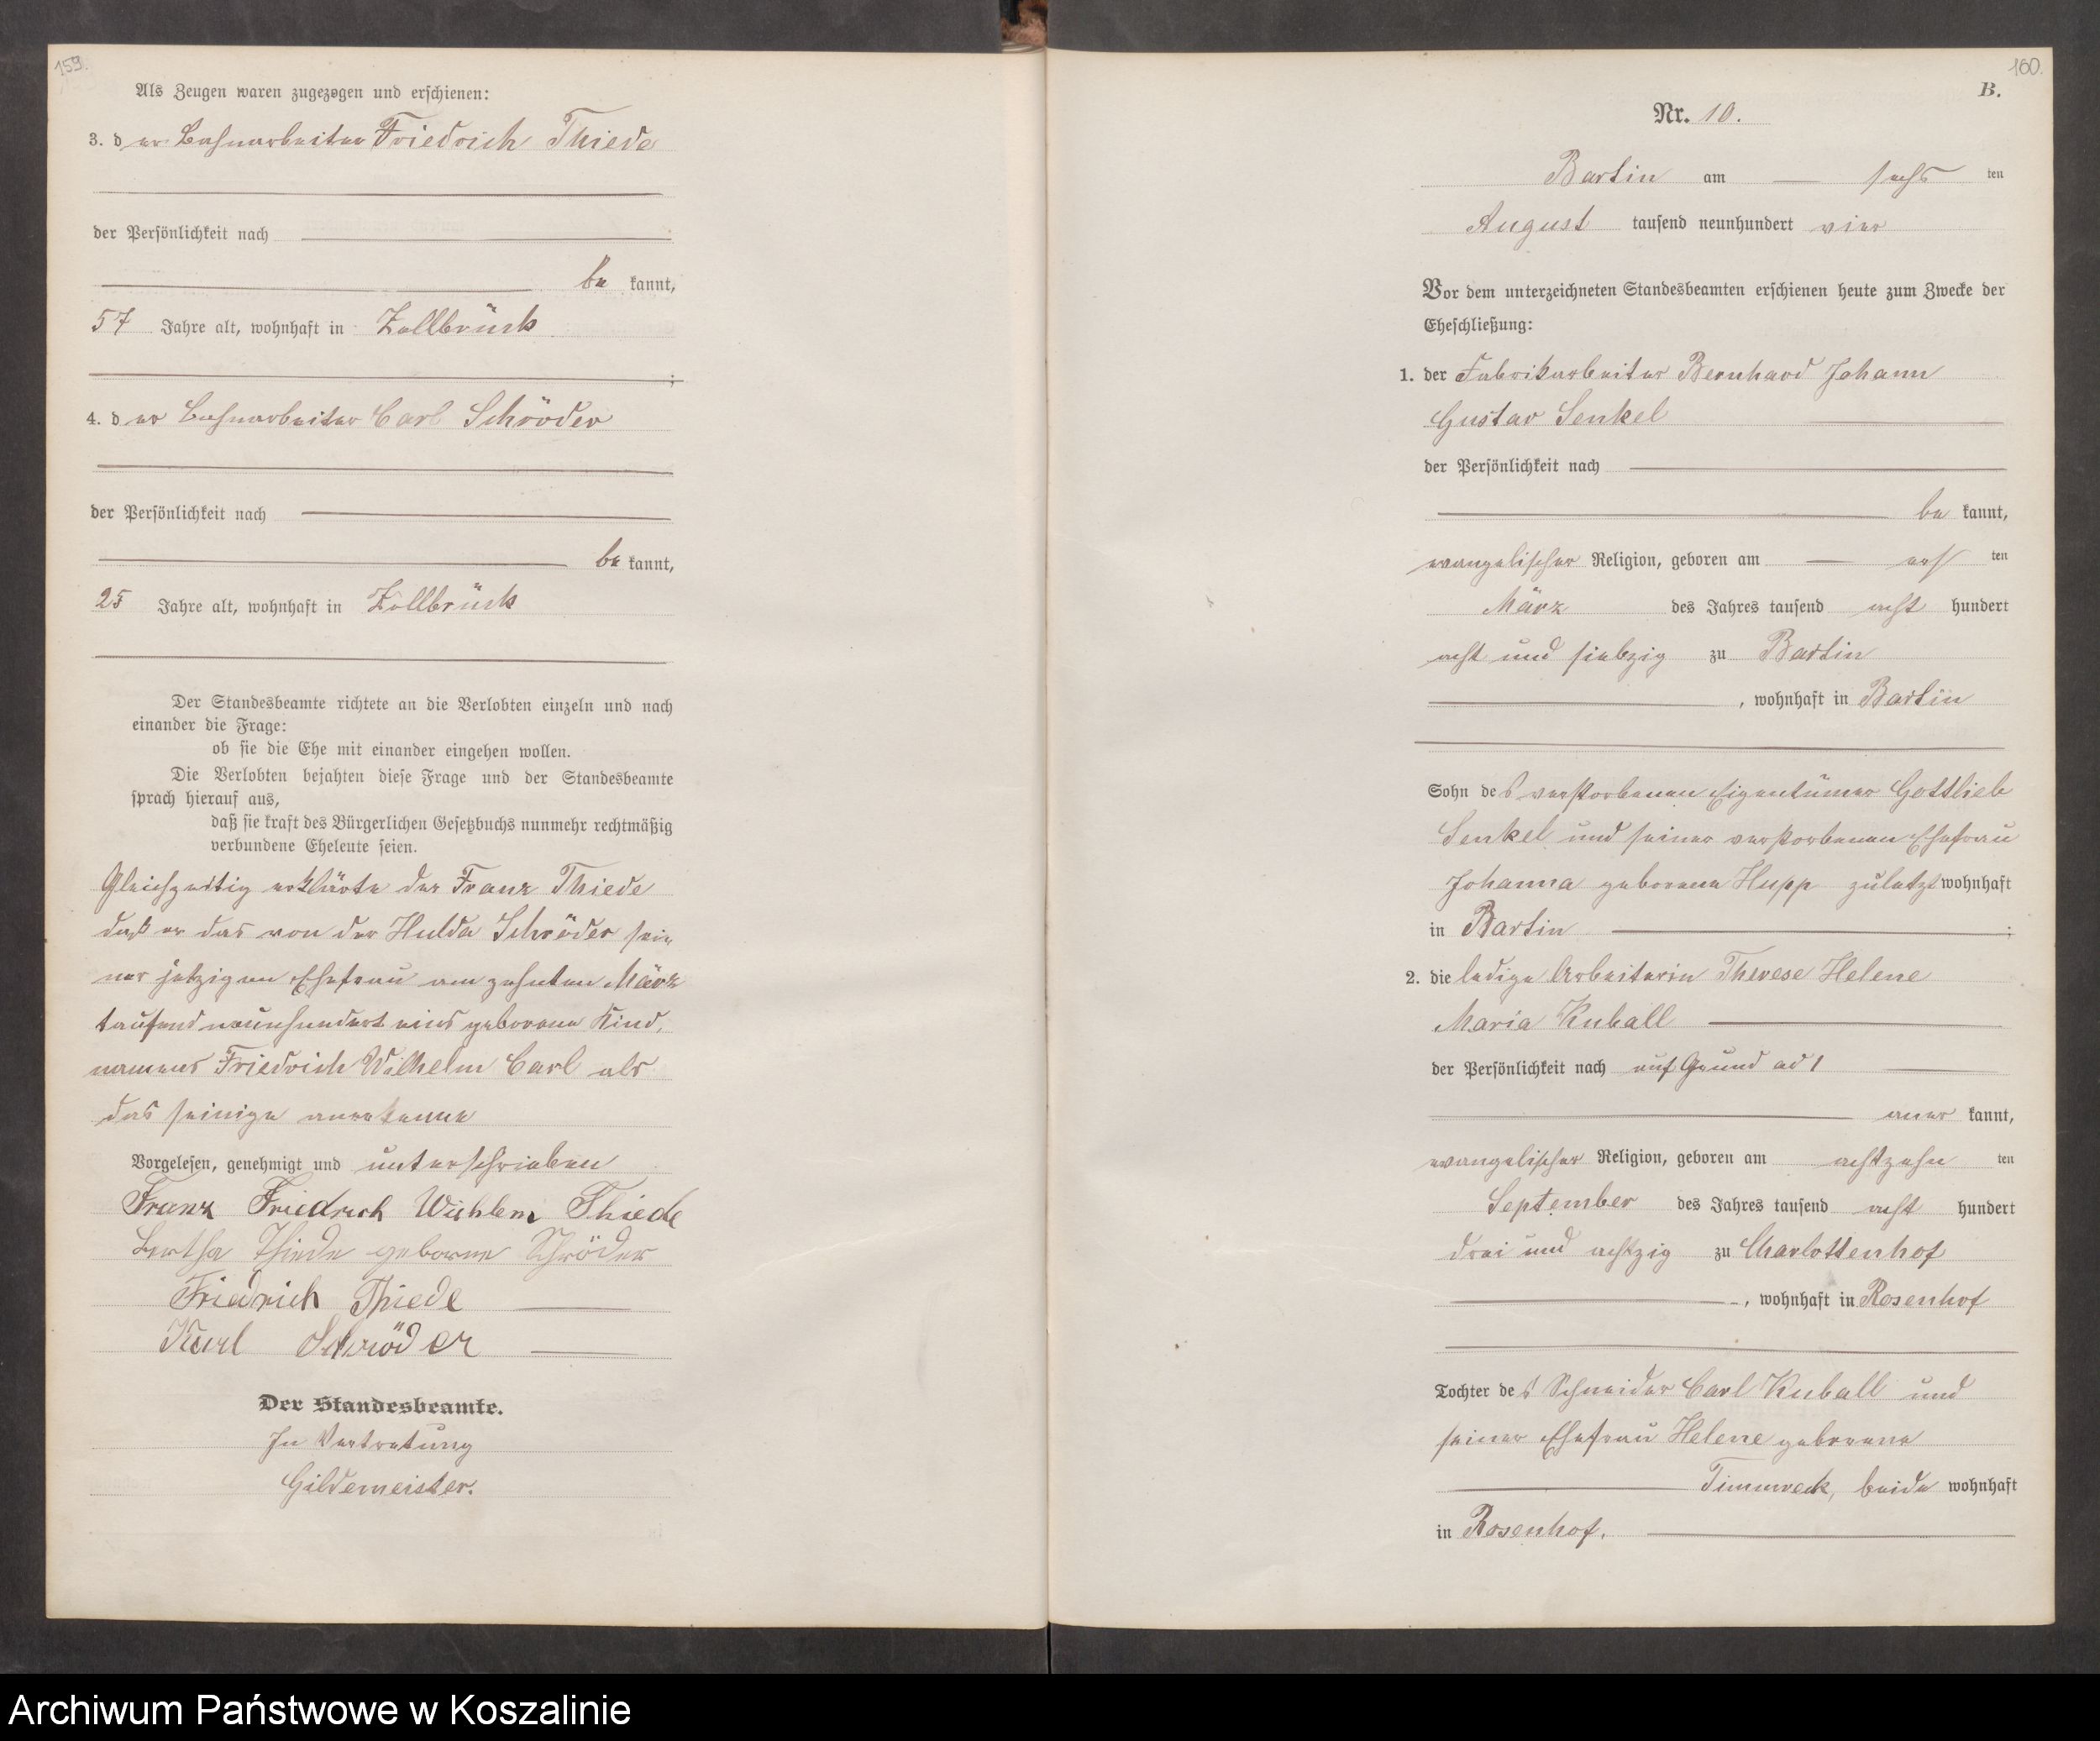 159.
Als Zeugen waren zugezogen und erschienen:
3. der Bahnarbeiter Friedrich Thiede
der Persönlichkeit nach
be kannt,
57 Jahre alt, wohnhaft in Zollbrück
;
4. der Bahnarbeiter Carl Schröder
der Persönlichkeit nach
be kannt,
25 Jahre alt, wohnhaft in Zollbrück
Der Standesbeamte richtete an die Verlobten einzeln und nach
einander die Frage:
ob sie die Ehe mit einander eingehen wollen.
Die Verlobten bejahten diese Frage und der Standesbeamte
sprach hierauf aus,
daß sie kraft des Bürgerlichen Gesetzbuchs nunmehr rechtmäßig
verbundene Eheleute seien.
Gleichzeitig erklärte der Franz Thiede
daß er das von der Hulda Schröder sei-
ner jetzigen Ehefrau am zehnten März
tausend neunhundert eins geborene Kind,
namens Friedrich Wilhelm Carl als
das seinige anerkenne
Vorgelesen, genehmigt und unterschrieben
Franz Friedrich Wichlem Thiede
Bertha Thiede geborene Schröder
Friedrich Thiede
Karl Schröder
Der Standesbeamte.
In Vertretung
Gildemeister.
160.
B.
Nr. 10.
Bartin am sechs ten
August tausend neunhundert vier
Vor dem unterzeichneten Standesbeamten erschienen heute zum Zwecke der
Eheschließung:
1. der Fabrikarbeiter Bernhard Johann
Gustav Senkel
der Persönlichkeit nach
be kannt,
evangelischer Religion, geboren am ers ten
März des Jahres tausend acht hundert
acht und siebzig zu Bartin
, wohnhaft in Bartin
Sohn des verstorbenen Eigentümer Gottlieb
Senkel und seiner verstorbenen Ehefrau
Johanna geborene Hupp zuletzt wohnhaft
in Bartin ;
2. die ledige Arbeiterin Therese Helene
Maria Kuball
der Persönlichkeit nach auf Grund ad 1
aner kannt,
evangelischer Religion, geboren am achtzehn ten
September des Jahres tausend acht hundert
drei und achtzig zu Charlottenhof
, wohnhaft in Rosenhof
Tochter des Schneider Carl Kuball und
seiner Ehefrau Helene geborene
beide wohnhaft
in Rosenhof.
Archiwum Państwowe w Koszalinie